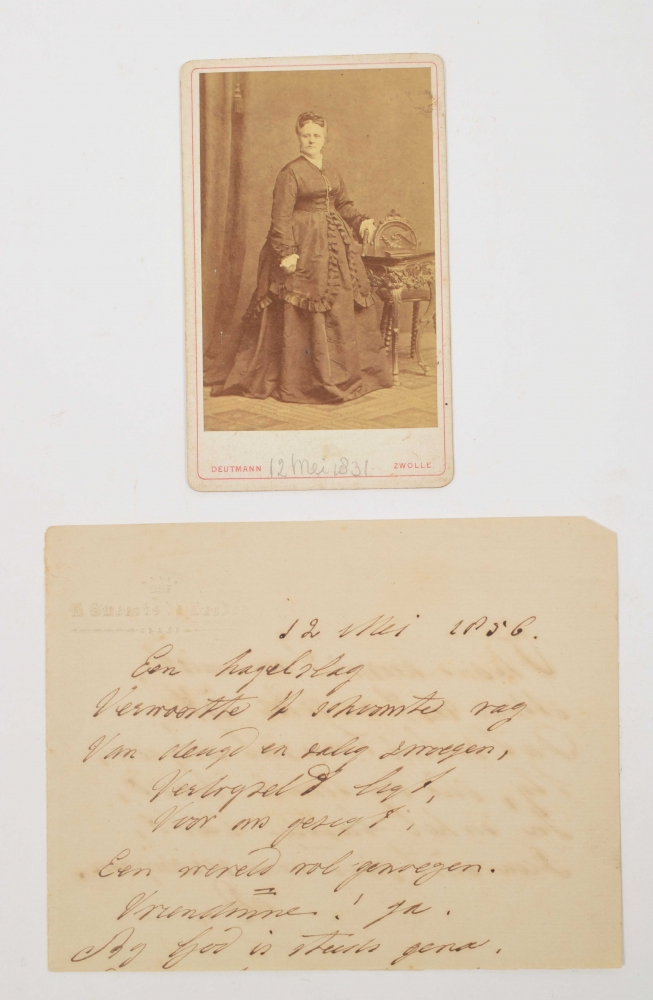 DEUTMANN 12 Mei 1831 ZWOLLE
12 Mei 1856.
Een hagelslag
Verwoestte 't schoonste rag
Van deugd en zalig zwoegen,
Verbrijzeld ligt,
Voor ons gezigt,
Een wereld vol genoegen.
Vriendinne! ja.
By God is steeds gena.